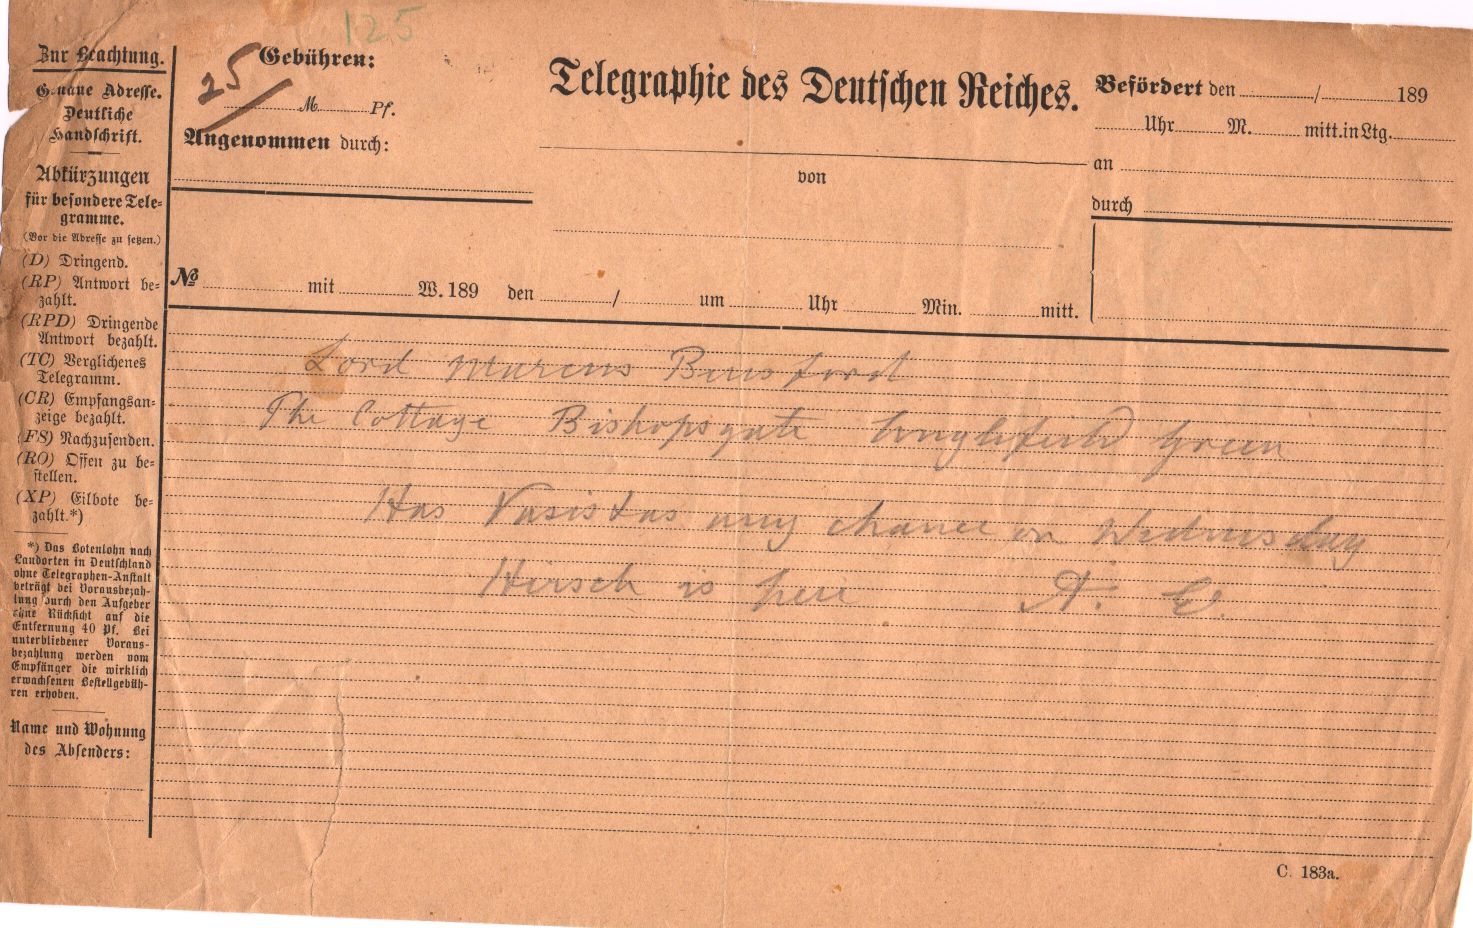 125
Zur Beachtung.
Genaue Adresse.
Deutliche
Handschrift.
Abkürzungen
für besondere Tele-
gramme.
(Vor die Adresse zu setzen.)
(D) Dringend.
(RP) Antwort be-
zahlt.
(RPD) Dringende
Antwort bezahlt.
(TC) Verglichenes
Telegramm.
(CR) Empfangsan-
zeige bezahlt.
(FS) Nachzusenden.
(RO) Offen zu be-
stellen.
(XP) Eilbote be-
zahlt.*)
*) Das Botenlohn nach
Landorten in Deutschland
ohne Telegraphen-Anstalt
beträgt bei Vorausbezah-
lung durch den Aufgeber
ohne Rücksicht auf die
Entfernung 40 Pf. Bei
unterbliebener Voraus-
bezahlung werden vom
Empfänger die wirklich
erwachsenen Bestellgebüh-
ren erhoben.
Name und Wohnung
des Absenders:
25 Gebühren:
M. Pf.
Angenommen durch:
Telegraphie des Deutschen Reiches.
von
Befördert den / 189
Uhr M. mitt. in Ltg.
an
durch
№ mit W. 189 den / um Uhr Min. mitt.
Lord Marcus Beresford
The Cottage Bishopsgate Englefield Green
Has Vasistas any chance on Wednesday
Hirsch is here A. E.
C. 183a.